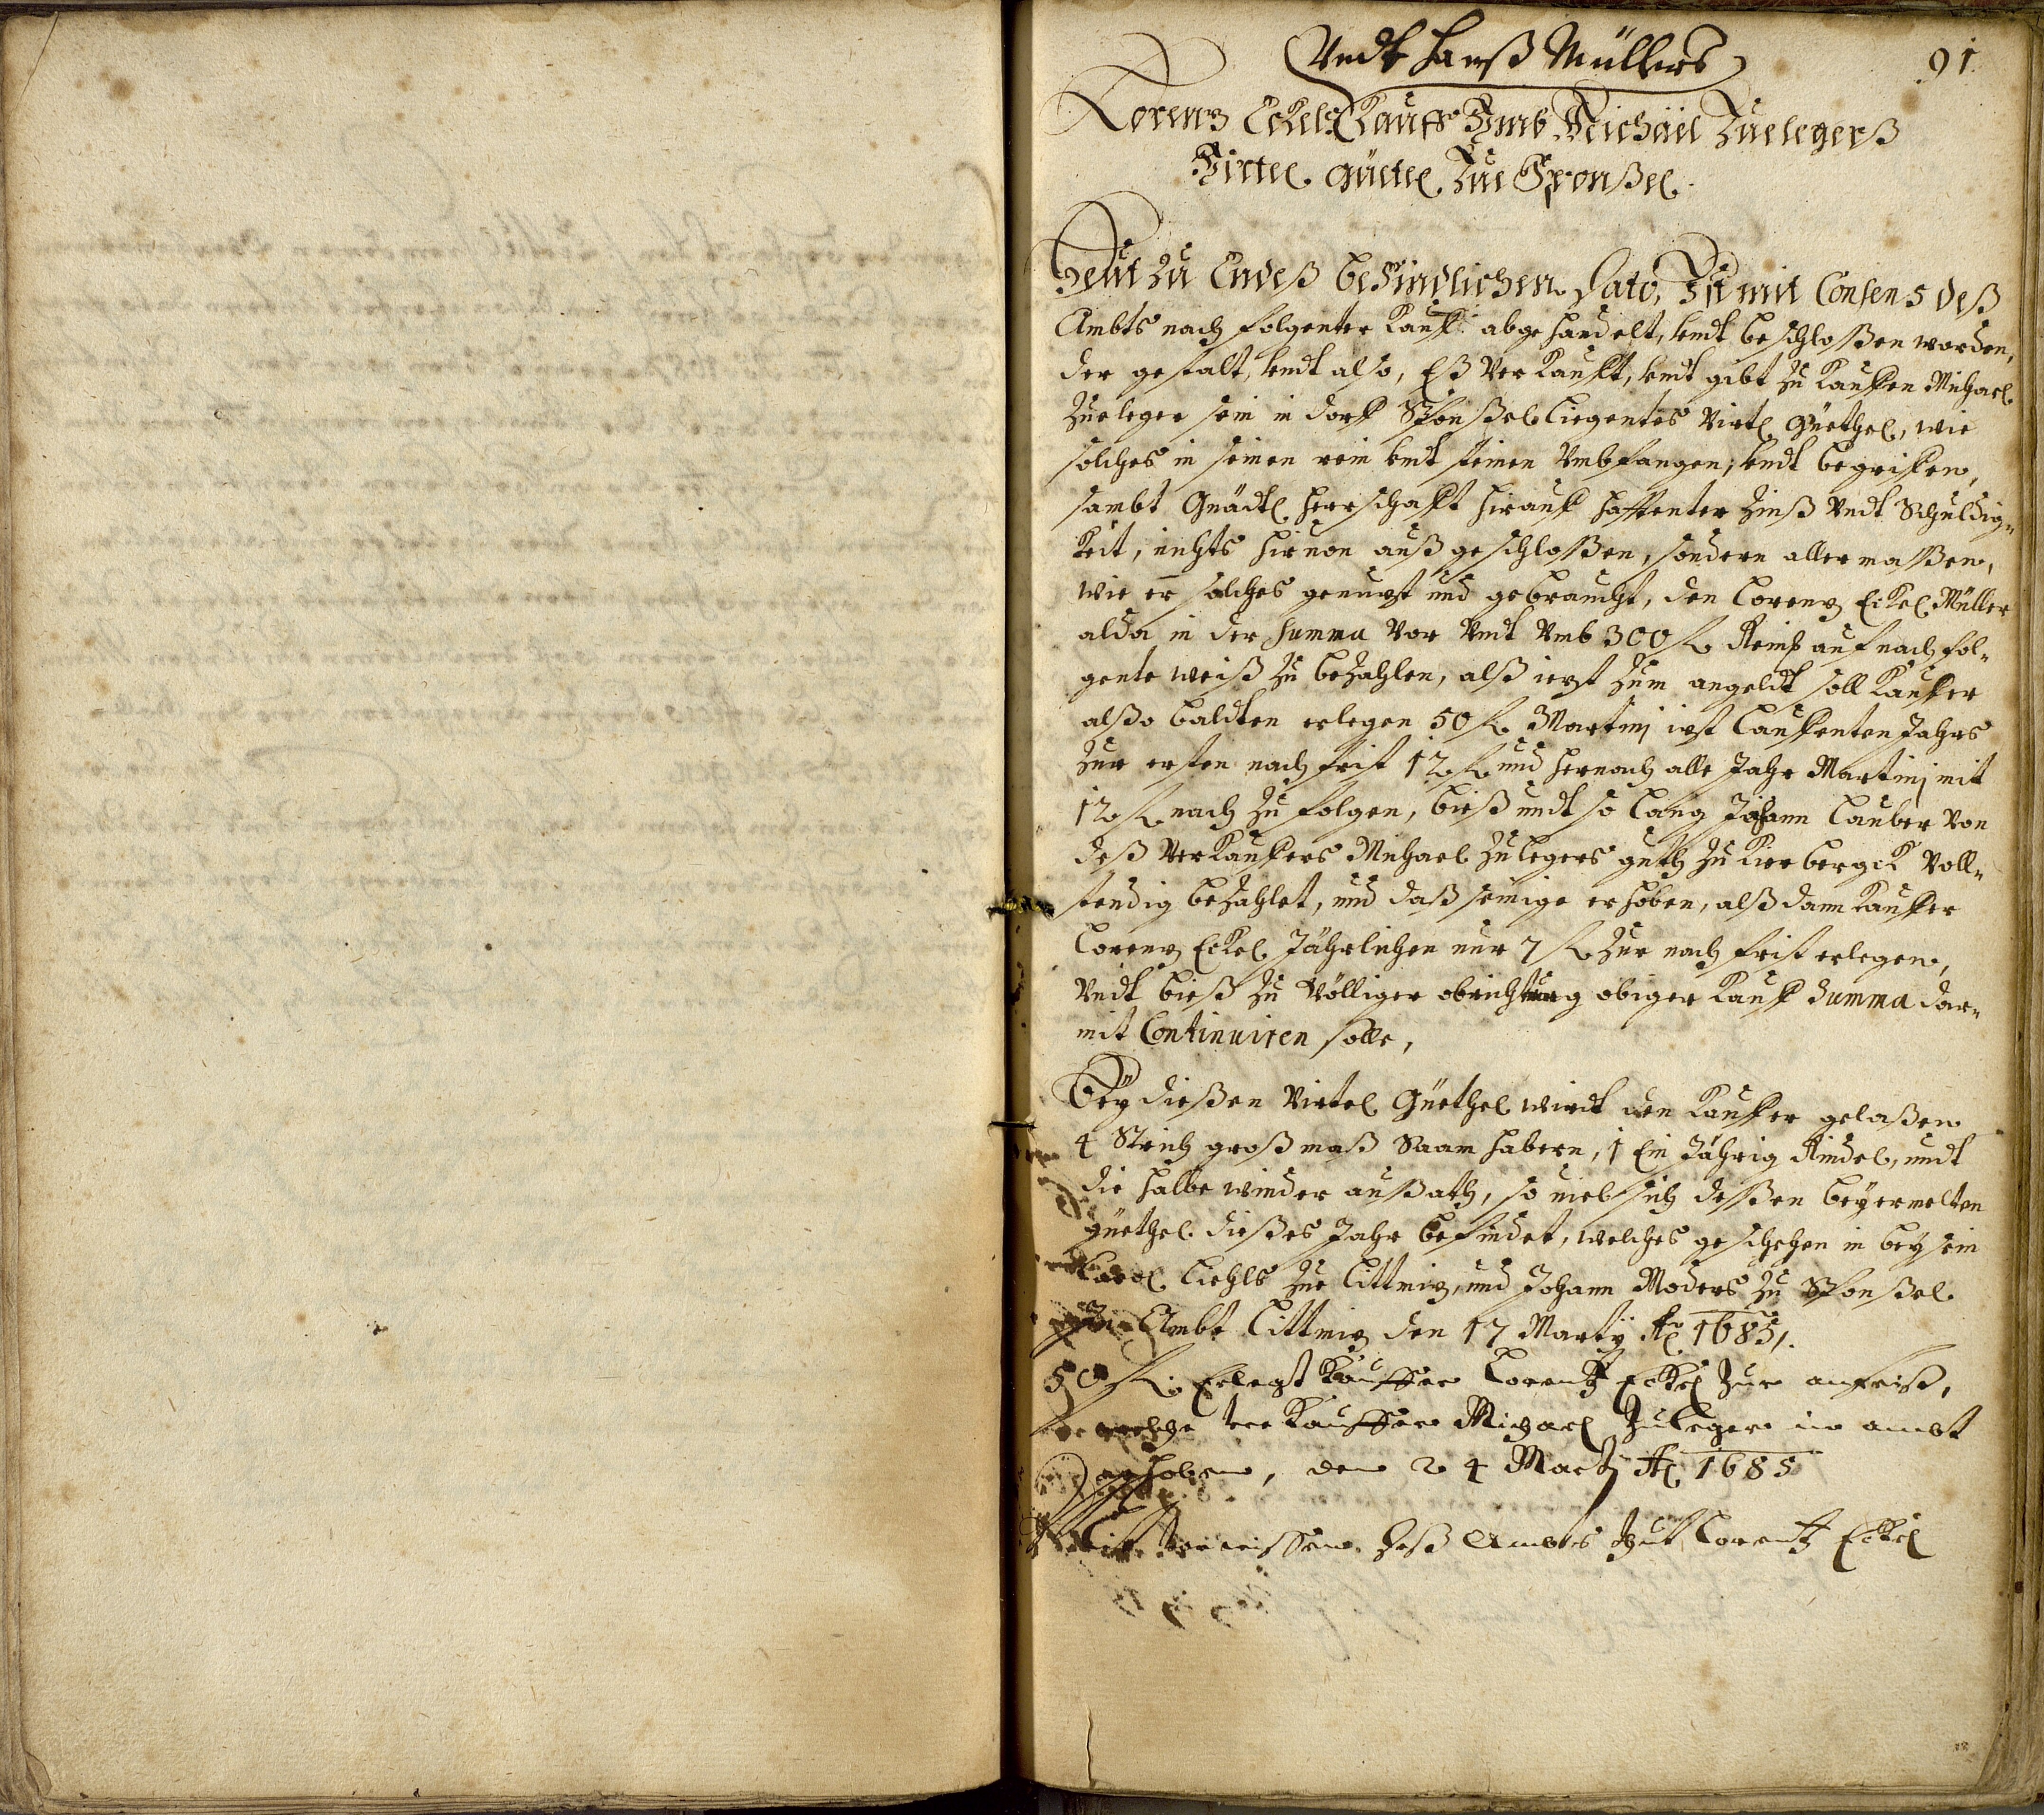 91
Vndt Hanß Müllers
Lorenz Eckels Kauff Vmb Michäel Zuelegerß
Virtel Güetel Zue Sponßel
Heut zu Endeß befündlichen Dato, Ist mit Consens deß
Ambts nach folgenter Kauff abgehandelt, vndt beschloßen worden,
der gestalt, vndt also, Eß verkaufft, vndt gibt zu kauffen Michael
Zueleger sein in dorff Sponßel liegentes Virtl Güethel, wie
solches in seinen rein vndt steinen Vmbfangen, vndt begriffen,
sambt Gnädl Herrschafft hirauff hafftenter Zinß Vndt Schuldig=
keit, nichts hiruon außgeschloßen, sondern aller maßen,
wie er solches genutzt und gebraucht, den Lorenz Eckel Müller
alda in der Summa Vor Vndt Vmb 300 f Reinß auf nach fol=
gente weiß zu bezahlen, alß ietzt zum angeldt soll Kauffer
alßo baldten erlegen 50 f Martinj ietzt lauffenten Jahrs
zur ersten nach frist 12 f und hernach alle Jahr Martinj mit
12 f nach zu folgen, bieß undt so lang Johann Lauber von
deß Verkauffers Michael Zulegers guth zu Kierbergk Voll=
stendig bezahlet, und daß seinige erhoben, alß dann Kauffer
Lorenz Eckel Jährlichen nur 7 f zur nach frist erlegen,
Vndt bieß zu Völliger obrichtung obiger Kauff Summa dar=
mit Continuiren solle,
Bey dießen Virtel Güethel wirdt den Kauffer gelaßen
4 Strich großmaß Saam habern, 1 Ein Jährig Rindel, undt
die halbe winder außath, so viel sich deßen bey ermelten
güethel dießes Jahr befindet, welches geschehen in beysein
Liehls zue Littmiz, und Johann Moders zu Sponßel
Ambt Littmiz den 17 Martij Ao 1685.
50 f Erlegt Kauffer Lorentz Eckel zur anfrist,
welche ver Kauffer Michael Zuleger in ambt
erhoben, den 24 Martj Ao 1685
deß Ambts hat Lorentz Eckel